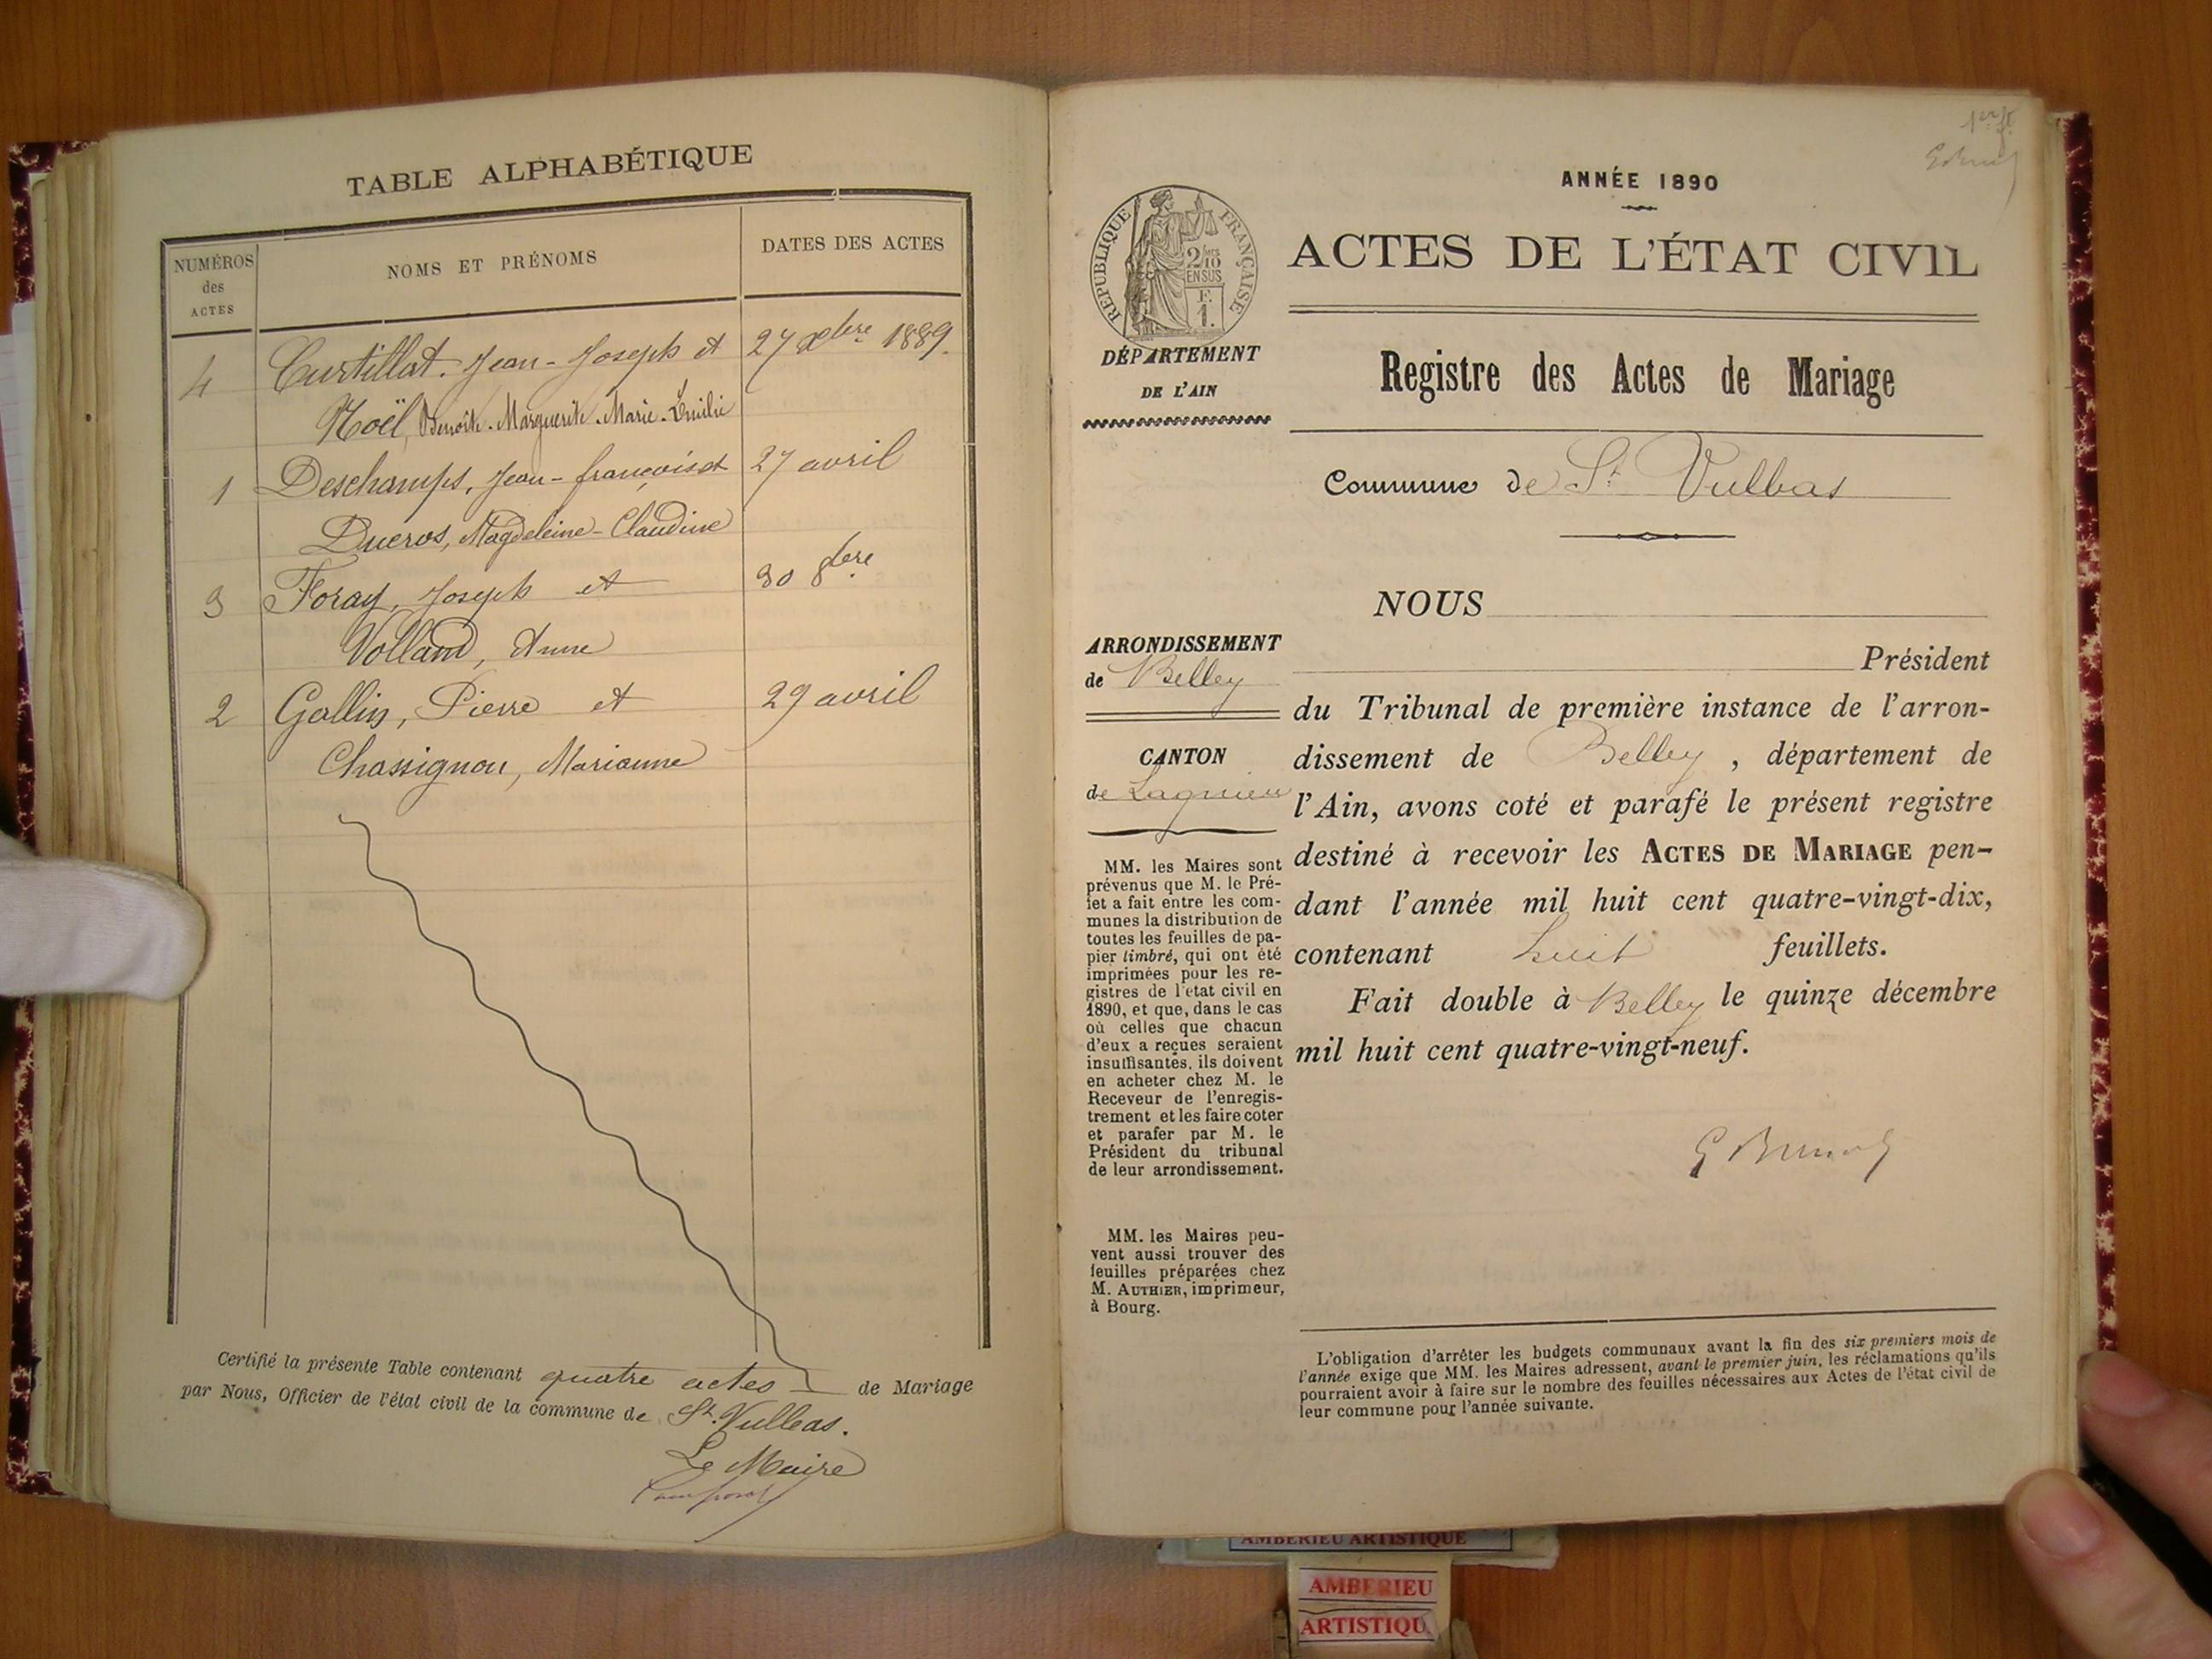 TABLE ALPHABÉTIQUE
NUMÉROS des ACTES
NOMS ET PRÉNOMS
DATES DES ACTES
4 Curtillat. Jean-Joseph et 27 Xbre 1889.
Noël, Benoîte-Marguerite-Marie-Emilie
1 Deschamps, Jean-françois et 27 avril
Ducros, Magdeleine-Claudine
3 Foray, Joseph et 30 8bre
Volland, Anne
2 Gallin, Pierre et 29 avril
Chassignon, Marianne
Certifié la présente Table contenant quatre actes de Mariage
par Nous, Officier de l'état civil de la commune de St. Vulbas.
Le Maire
1er f.
ANNÉE 1890
RÉPUBLIQUE FRANÇAISE
2/10 EN SUS
F. 1.
ACTES DE L'ÉTAT CIVIL
DÉPARTEMENT
DE L'AIN
Registre des Actes de Mariage
Commune de St. Vulbas
NOUS
ARRONDISSEMENT
de Belley
CANTON
de Lagnieu
Président
du Tribunal de première instance de l'arron-
dissement de Belley, département de
l'Ain, avons coté et parafé le présent registre
destiné à recevoir les ACTES DE MARIAGE pen-
dant l'année mil huit cent quatre-vingt-dix,
contenant huit feuillets.
Fait double à Belley le quinze décembre
mil huit cent quatre-vingt-neuf.
MM. les Maires sont
prévenus que M. le Pré-
fet a fait entre les com-
munes la distribution de
toutes les feuilles de pa-
pier timbré, qui ont été
imprimées pour les re-
gistres de l'état civil en
1890, et que, dans le cas
où celles que chacun
d'eux a reçues seraient
insuffisantes, ils doivent
en acheter chez M. le
Receveur de l'enregis-
trement et les faire coter
et parafer par M. le
Président du tribunal
de leur arrondissement.
MM. les Maires peu-
vent aussi trouver des
feuilles préparées chez
M. AUTHIER, imprimeur,
à Bourg.
L'obligation d'arrêter les budgets communaux avant la fin des six premiers mois de
l'année exige que MM. les Maires adressent, avant le premier juin, les réclamations qu'ils
pourraient avoir à faire sur le nombre des feuilles nécessaires aux Actes de l'état civil de
leur commune pour l'année suivante.
AMBERIEU ARTISTIQUE
AMBERIEU
ARTISTIQU